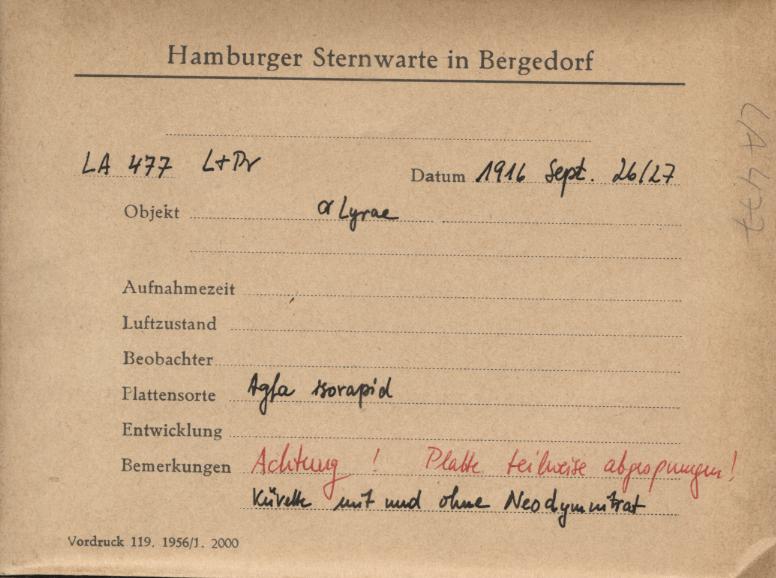 Hamburger Sternwarte in Bergedorf
LA 477 L+Pr Datum 1916 Sept. 26/27
Objekt α Lyrae
Aufnahmezeit
Luftzustand
Beobachter
Plattensorte Agfa isorapid
Entwicklung
Bemerkungen Achtung! Platte teilweise abgesprungen!
Küvette mit und ohne Neodymnitrat
Vordruck 119. 1956/1. 2000
LA 477